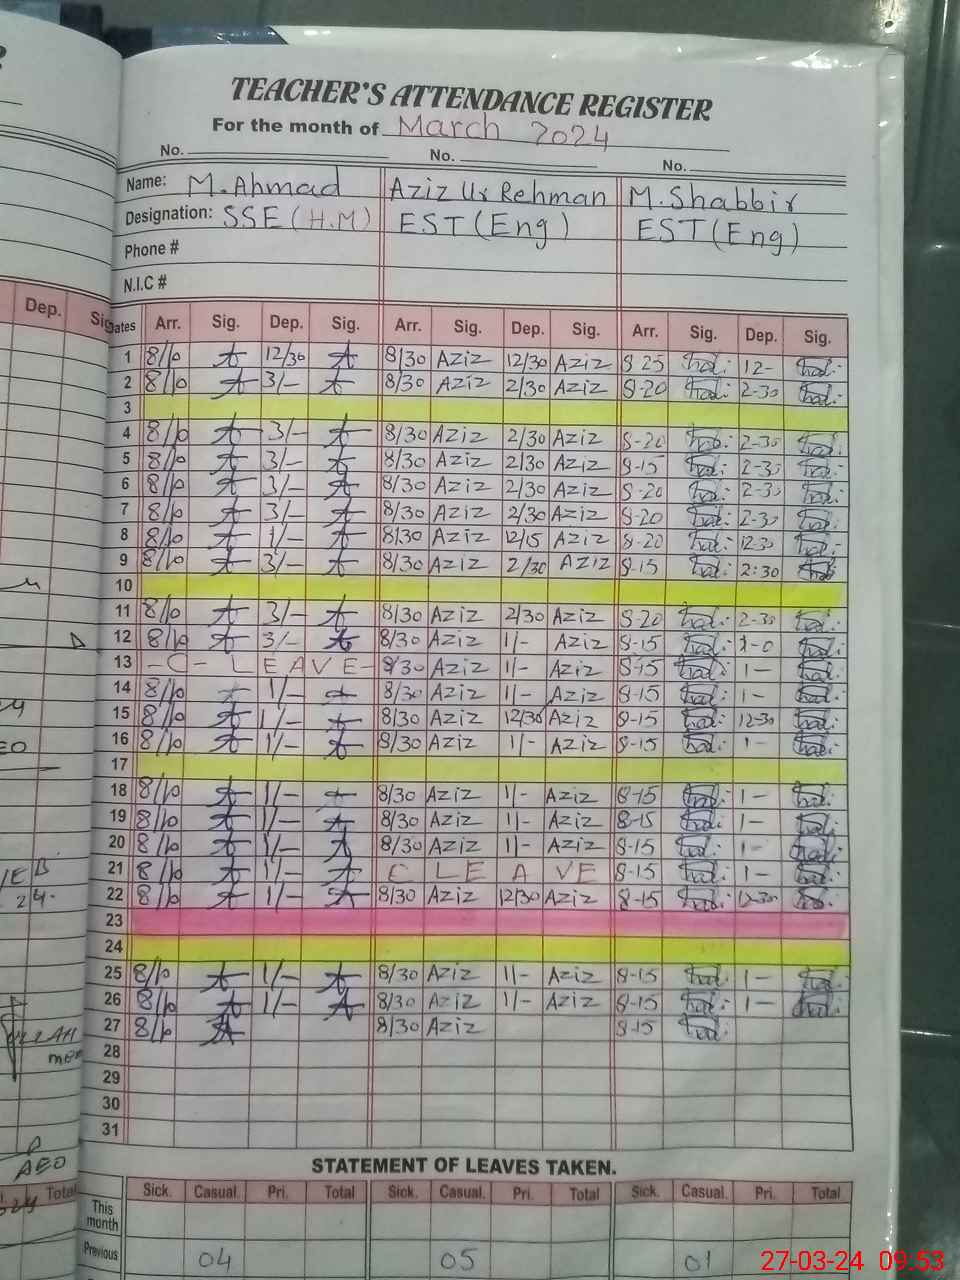 TEACHER'S ATTENDANCE REGISTER
For the month of March 2024
No. No. No.
Name: M.Ahmad Aziz Ur Rehman M.Shabbir
Designation: SSE (H.M) EST (Eng) EST (Eng)
Phone #
N.I.C #
Dep. Sig
Dates Arr. Sig. Dep. Sig. Arr. Sig. Dep. Sig. Arr. Sig. Dep. Sig.
1 8/10 12/30 8/30 Aziz 12/30 Aziz 8-25 12-
2 8/10 3/- 8/30 Aziz 2/30 Aziz 8-20 2-30
3
4 8/10 3/- 8/30 Aziz 2/30 Aziz 8-20 2-30
5 8/10 3/- 8/30 Aziz 2/30 Aziz 8-15 2-30
6 8/10 3/- 8/30 Aziz 2/30 Aziz 8-20 2-30
7 8/10 3/- 8/30 Aziz 2/30 Aziz 8-20 2-30
8 8/10 1/- 8/30 Aziz 12/15 Aziz 8-20 12 30
9 8/10 3/- 8/30 Aziz 2/30 Aziz 8-15 2:30
10
11 8/10 3/- 8/30 Aziz 2/30 Aziz 8-20 2-30
12 8/10 3/- 8/30 Aziz 1/- Aziz 8-15
13 -C- LEAVE- 8/30 Aziz 1/- Aziz 8-15 1-
14 8/10 1/- 8/30 Aziz 1/- Aziz 8-15 1-
15 8/10 1/- 8/30 Aziz 12/30 Aziz 8-15 12-30
16 8/10 1/- 8/30 Aziz 1/- Aziz 8-15 1-
17
18 8/10 1/- 8/30 Aziz 1/- Aziz 8-15 1-
19 8/10 1/- 8/30 Aziz 1/- Aziz 8-15 1-
20 8/10 1/- 8/30 Aziz 1/- Aziz 8-15 1-
21 8/10 1/- C LEAVE 8-15 1-
22 8/10 1/- 8/30 Aziz 12/30 Aziz 8-15 12-30
23
24
25 8/10 1/- 8/30 Aziz 1/- Aziz 8-15 1-
26 8/10 1/- 8/30 Aziz 1/- Aziz 8-15 1-
27 8/10 8/30 Aziz 8-15
28
29
30
31
AEO
STATEMENT OF LEAVES TAKEN.
Total Sick. Casual. Pri. Total Sick. Casual. Pri. Total Sick. Casual. Pri. Total
This month
Previous 04 05 01
27-03-24 09:53